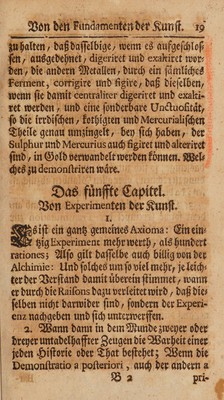 Von den Fundamenten der Kunst. 19
zu halten, daß dasselbige, wenn es aufgeschlos-
sen, ausgedehnet, digeriret und exaltiret wor-
den, die andern Metallen, durch ein sämliches
Ferment, corrigire und figire, daß dieselben,
wenn sie damit centraliter digeriret und exalti-
ret werden, und eine sonderbare Unctuosität,
so die irrdischen, kothigten und Mercurialischen
Theile genau umzingelt, bey sich haben, der
Sulphur und Mercurius auch figiret und alteriret
sind, in Gold verwandelt werden können. Wel-
ches zu demonstriren wäre.
Das fünffte Capitel.
Von Experimenten der Kunst.
1.
Es ist ein gantz gemeines Axioma: Ein ein-
tzig Experiment mehr werth, als hundert
rationes; Also gilt dasselbe auch billig von der
Alchimie: Und solches um so viel mehr, je leich-
ter der Verstand damit überein stimmet, wann
er durch die Raisons dazu verleitet wird, daß die-
selben nicht darwider sind, sondern der Experi-
enz nachgeben und sich unterwerffen.
2. Wann dann in dem Munde zweyer oder
dreyer untadelhaffter Zeugen die Warheit einer
jeden Historie oder That bestehet; Wenn die
Demonstratio a posteriori, auch der andern a
B 2 pri-